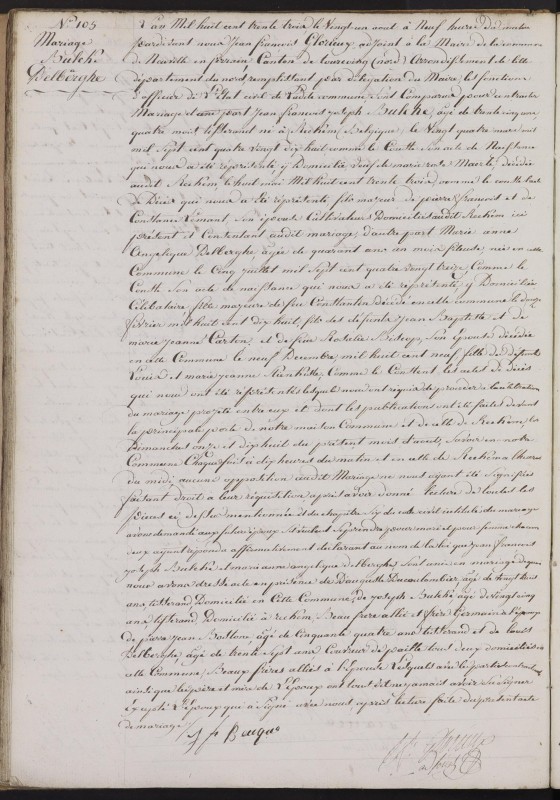 N° 105
Mariage
Bulcké
Delbèrghe
L'an Mil huit cent trente trois le Vingt un aout à Neuf heures du matin
pardevant nous Jean françois Glorieux adjoint à la Maire de la commune
de Neuville en ferrain Canton de tourcoing (nord) Arrondissement de lille
département du nord remplissant par délégation du Maire, les fonctions
d'officier de l'état civil de ladite commune, sont Comparus pour contracter
Mariage d'une part Jean françois joseph Bulcke, agé de trente cinq ans
quatre mois tisserand né à Reckem, Belgique, le Vingt quatre mars
mil Sept cent quatre vingt dix huit comme le Conste Son acte de Naissance
qui nous a été représenté, y Domicilié, Veuf de marie rose décédée
audit Reckem, le huit mai Mil huit cent trente trois, comme le conste l'acte
de Décès qui nous a été représenté, fils majeur de pierre françois et de
Constance Son épouse Cultivateurs Domiciliés audit Reckem ici
présents et Consentant audit mariage, d'autre part Marie anne
Angelique Delberghe agée de quarante ans un mois fileuse, née en cette
Commune le Cinq juillet mil Sept cent quatre vingt treize, Comme le
Conste Son acte de naissance qui nous a été représenté, y Domiciliée
Célibataire, fille majeure de feu Constantin décédé en cette commune le douze
février mil huit cent dix huit, fils des défunts Jean Baptiste et de
marie jeanne Carton, et de feue Rosalie Son épouse décédée
en cette Commune le neuf Décembre mil huit cent neuf fille des défunts
Louis et marie jeanne Comme le Constent les actes de Décès
qui nous ont été représentés lesquels nous ont requis de procéder à la célébration
du mariage projeté entre eux et dont les publications ont été faites devant
la principale porte de notre maison Commune et de celle de Reckem, les
Dimanches onze et dix huit du présent mois d'aout, Savoir en notre
Commune Chaque fois à dix heures du matin et en celle de Reckem à l'heure
de midi, aucune opposition audit Mariage ne nous ayant été Signifiée
faisant droit à leur réquisition après avoir donné lecture de toutes les
pièces ci dessus mentionnées et du chapitre Six du code civil intitulé du mariage
avons demandé aux futurs époux s'ils veulent se prendre pour mari et pour femme chacun
d'eux ayant répondu affirmativement déclarons au nom de la loi que jean françois
joseph Bulcké et marie anne angelique delberghe, Sont unis en mariage de quoi
nous avons dressé acte en présence de D'auguste agé de vingt huit
ans tisserand Domicilié en Cette Commune, de joseph Bulcké, agé de vingt cinq
ans tisserand Domicilié à reckem, Beau frère allié et frère Germain de l'époux
de pierre jean agé de Cinquante quatre ans tisserand et de louis
Delberghe, agé de trente Sept ans Couvreur de paille tous deux domiciliés en
cette Commune, Beaux frères alliés à l'épouse lesquels ainsi que les parties contractantes
ainsi que le père et mère de l'Epoux ont tous dit ne jamais avoir su Signer
Excepté l'Epoux qui a Signé avec nous, après lecture faite du présent acte
de mariage